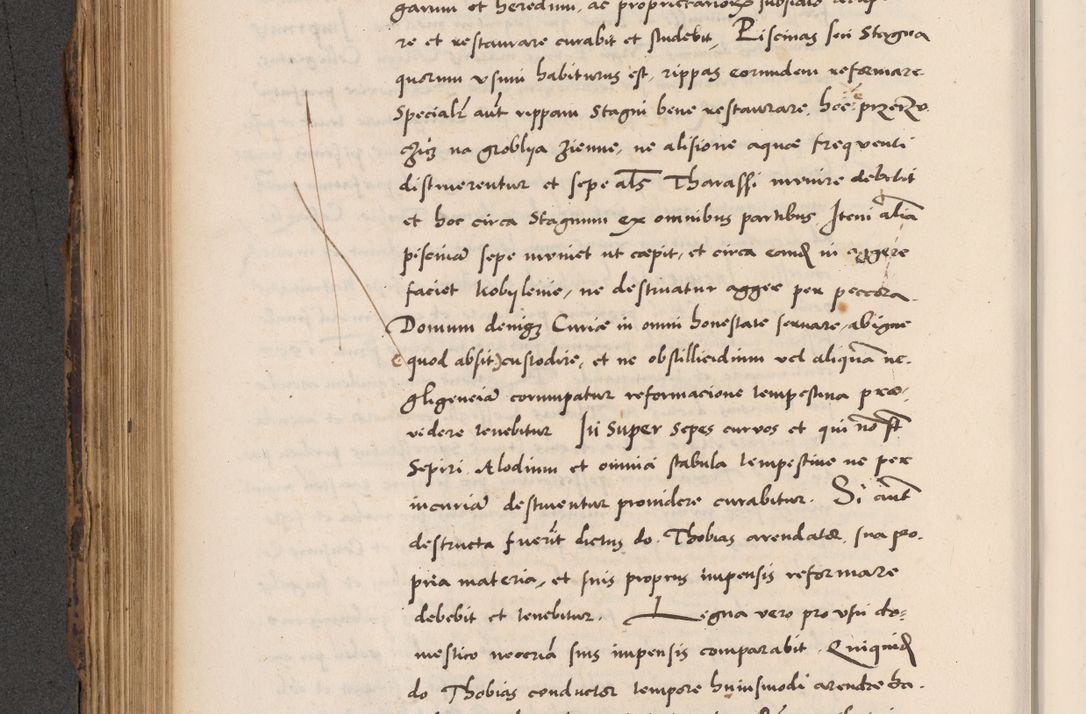 garum et heredum, ac proprietariorum
re et restaurare curabit et studebit, Piscinas seu Stagna
quorum usum habiturus est, rippas eorundem reformare
Specialr aut rippam Stagni bene restaurare, hoc
na groblya zienne, ne alisione aquae frequenti
distruerentur et sepe als Tharassi munire debebit
et hoc circa Stagnum ex omnibus partibus, Item alia
piscina sepe muniet ut caepit, et circa eand in aggere
faciet kobylenie, ne destruatur agger per peccora.
Domum deniq Curiae in omni honestate servare, ab igne
(quod absit) custodire, et ne obstillicidium vel aliquã ne-
gligenciã corumpatur reformacione tempestiva prae-
videre tenebitur In Super Sepes curvos et qui nõ st
Sepiri Alodium et omnia stabula tempestive ne per
incuriã destruentur providere curabitur. Si aut
destructa fuerit dictus do. Thobias arendator, sua pro-
pria materia, et suis propriis impensis reformare
debebit et tenebitur. Legna vero pro usu do-
mestico neceriã suis impensis comparabit. Quiquid
do Thobias conductor tempore huiusmodi arendae da-